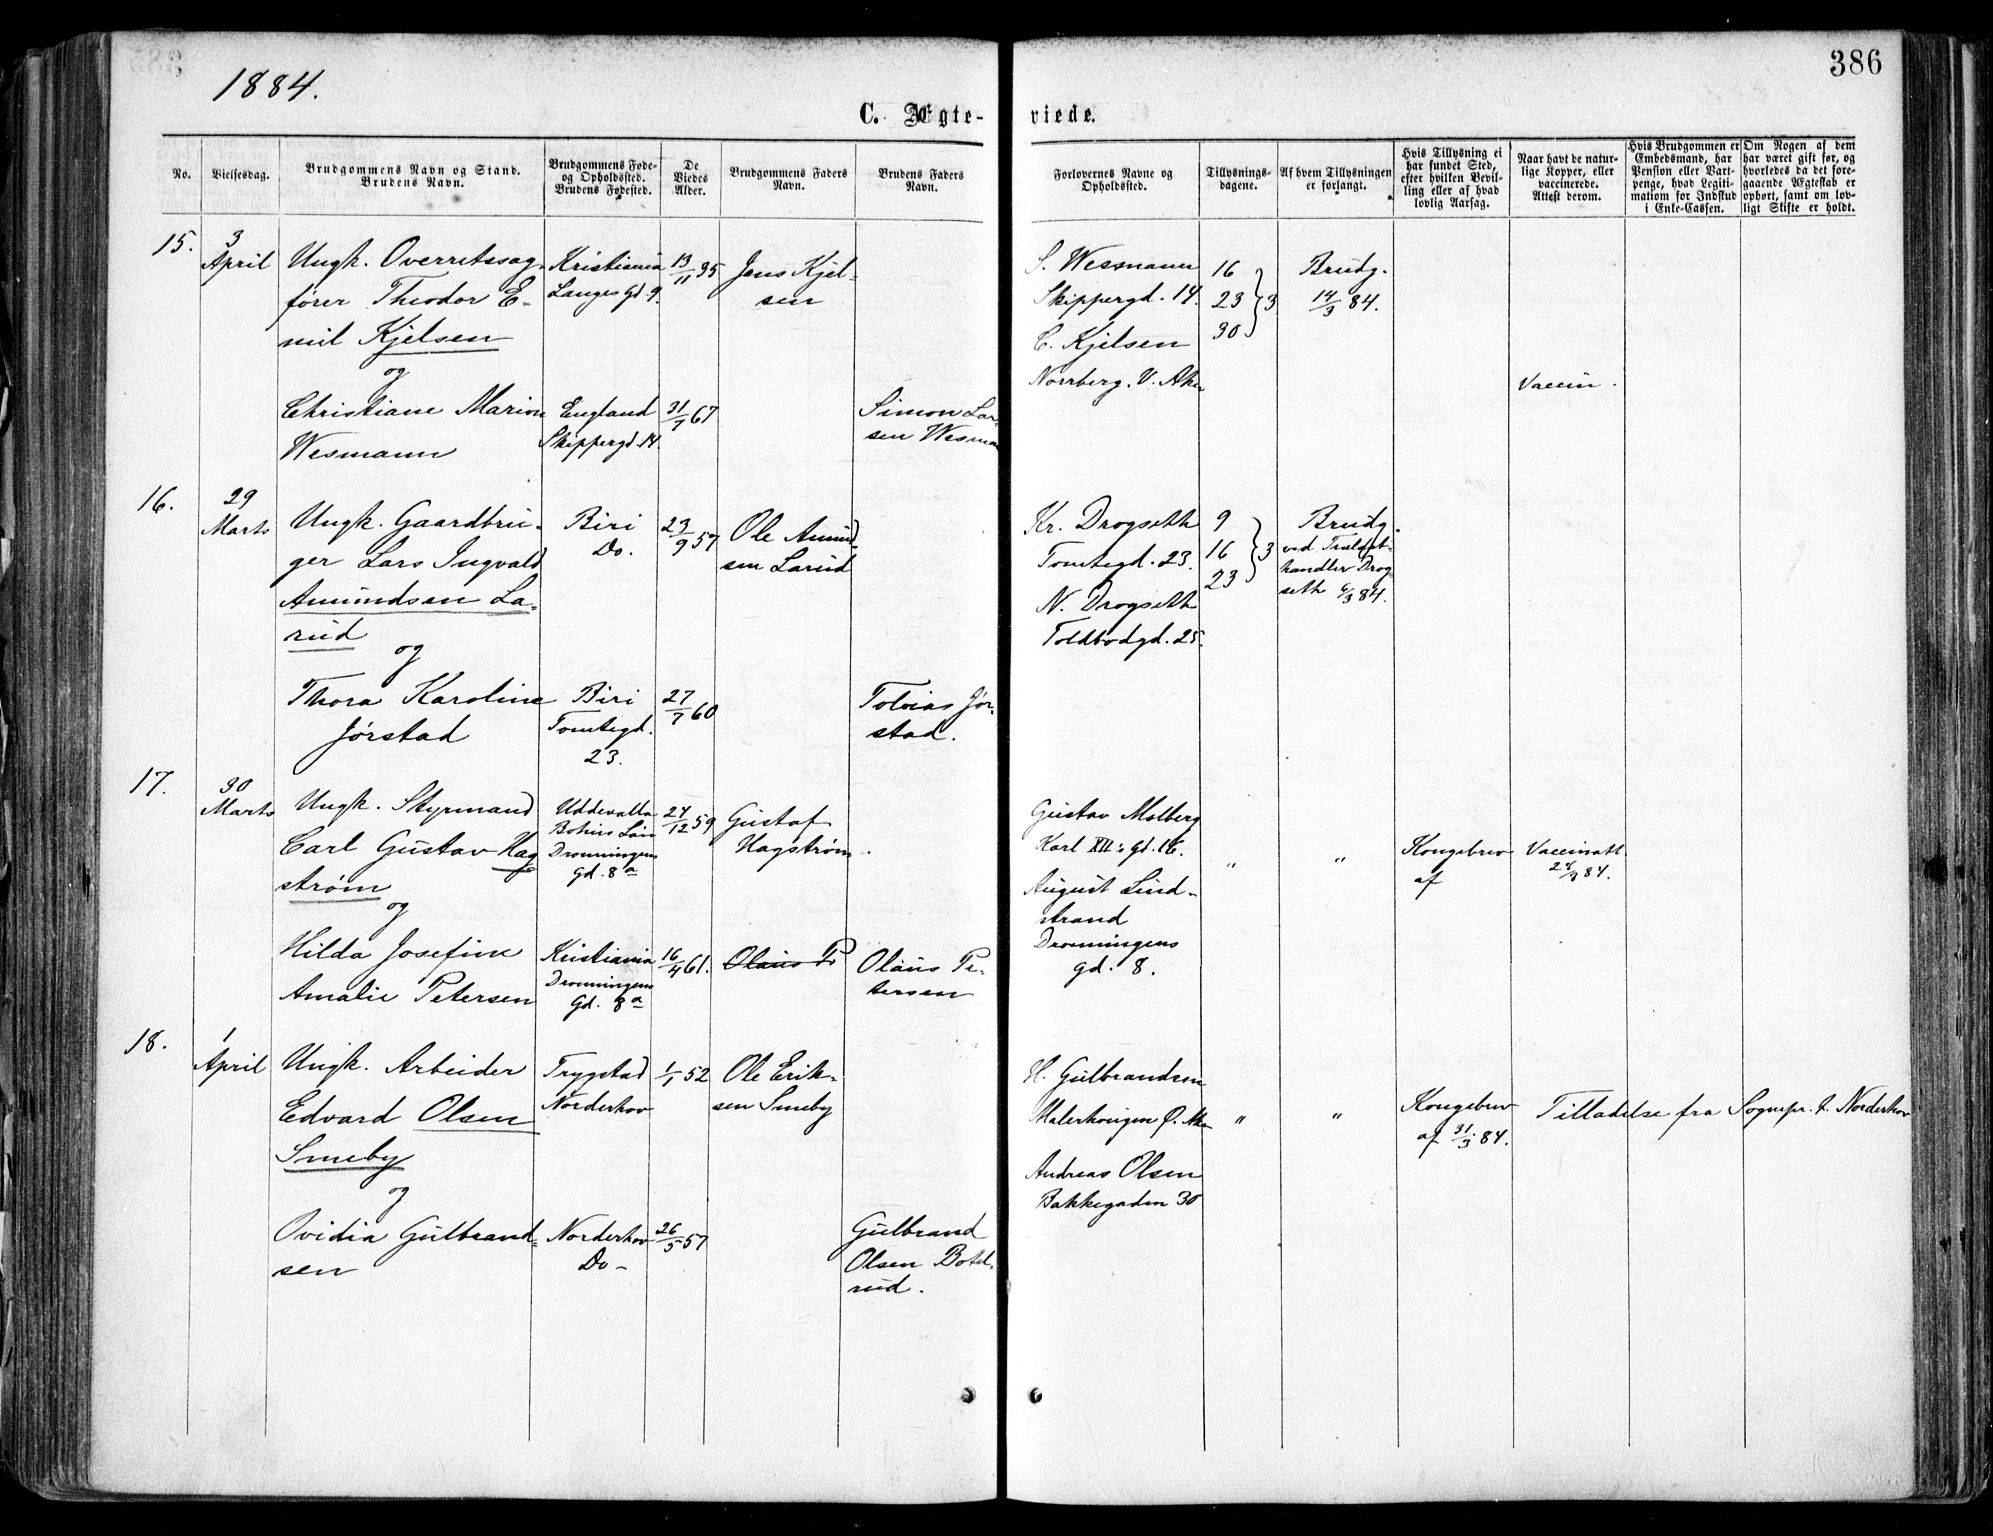 1884.
386
C. Ægte-
viede.
No.
Vielsesdag.
Brudgommens Navn og Stand.
Brudens Navn.
Brudgommens Føde-
og Opholdssted.
Brudens Fødested.
De
Viedes
Alder.
Brudgommens Faders
Navn.
Brudens Faders
Navn.
Forlovernes Navne og
Opholdssted.
Tillysnings-
dagene.
Af hvem Tillysningen
er forlangt.
Hvis Tillysning ei
har fundet Sted,
efter hvilken Bevil-
ling eller af hvad
lovlig Aarsag.
Naar havt de natur-
lige Kopper, eller
vaccinerede.
Attest derom.
Hvis Brudgommen er
Embedsmand, har
Pension eller Vart-
penge, hvad Legiti-
mation for Indskud
i Enke-Cassen.
Om Nogen af dem
har været gift før, og
hvorledes da det fore-
gaaende Ægteskab er
ophørt, samt om lov-
ligt Skifte er holdt.
15.
3
April
Ungk. Overretssag-
fører Theodor E-
mil Kjelsen
og
Christiane Marion
Wesmann
Kristiania
Langes Gd. 9.
England
Skippergd. 14.
13/11 35
31/7 67
Jens Kjel-
sen
Simon Lar-
sen Wesman
S. Wesmann
Skippergd. 14.
C. Kjelsen
Norrberg. V. Aker
16
23 } 3
30
Brudg.
14/3 84.
Vaccin.
16.
29
Marts
Ungk. Gaardbru-
ger Lars Ingvald
Amundsen La-
rud
og
Thora Karoline
Jørstad
Biri
Do.
Biri
Tomtegd.
23.
23/9 57
27/7 60
Ole Amund-
sen Larud
Tobias Jør-
stad.
Kr. Drogseth
Tomtegd. 23.
N. Drogseth
Toldbodgd. 25.
9
16 } 3
23
Brudg.
ved Trælast-
handler Drog-
seth 6/3 84.
17.
30
Marts
Ungk. Styrmand
Carl Gustav Hag
strøm
og
Hilda Josefine
Amalie Petersen
Uddevalla
Bohus Län
Dronningens
Gd. 8a
Kristiania
Dronningens
Gd. 8a
24/12 59
16/4 61.
Gustaf
Hagstrøm.
Olaus P
Olaus Pe-
tersen
Gustav Molberg
Karl XII:s gd. 16.
August Lind-
strand
Dronningens
gd. 8.
"
"
Kongebrev
af
Vaccinatt.
84.
18.
1
April
Ungk. Arbeider
Edvard Olsen
Smeby
og
Ovidia Gulbrand-
sen
Trygstad
Norderhov
Norderhov
Do -
1/1 52
26/5 57
Ole Erik-
sen Smeby
Gulbrand
Olsen Botel-
rud.
H. Gulbrandsen
Malerhougen Ø. Aker
Andreas Olsen
Bakkegaden 30
"
"
Kongebrev
af 31/3 84.
Tilladelse fra Sognepr. t. Norderhov